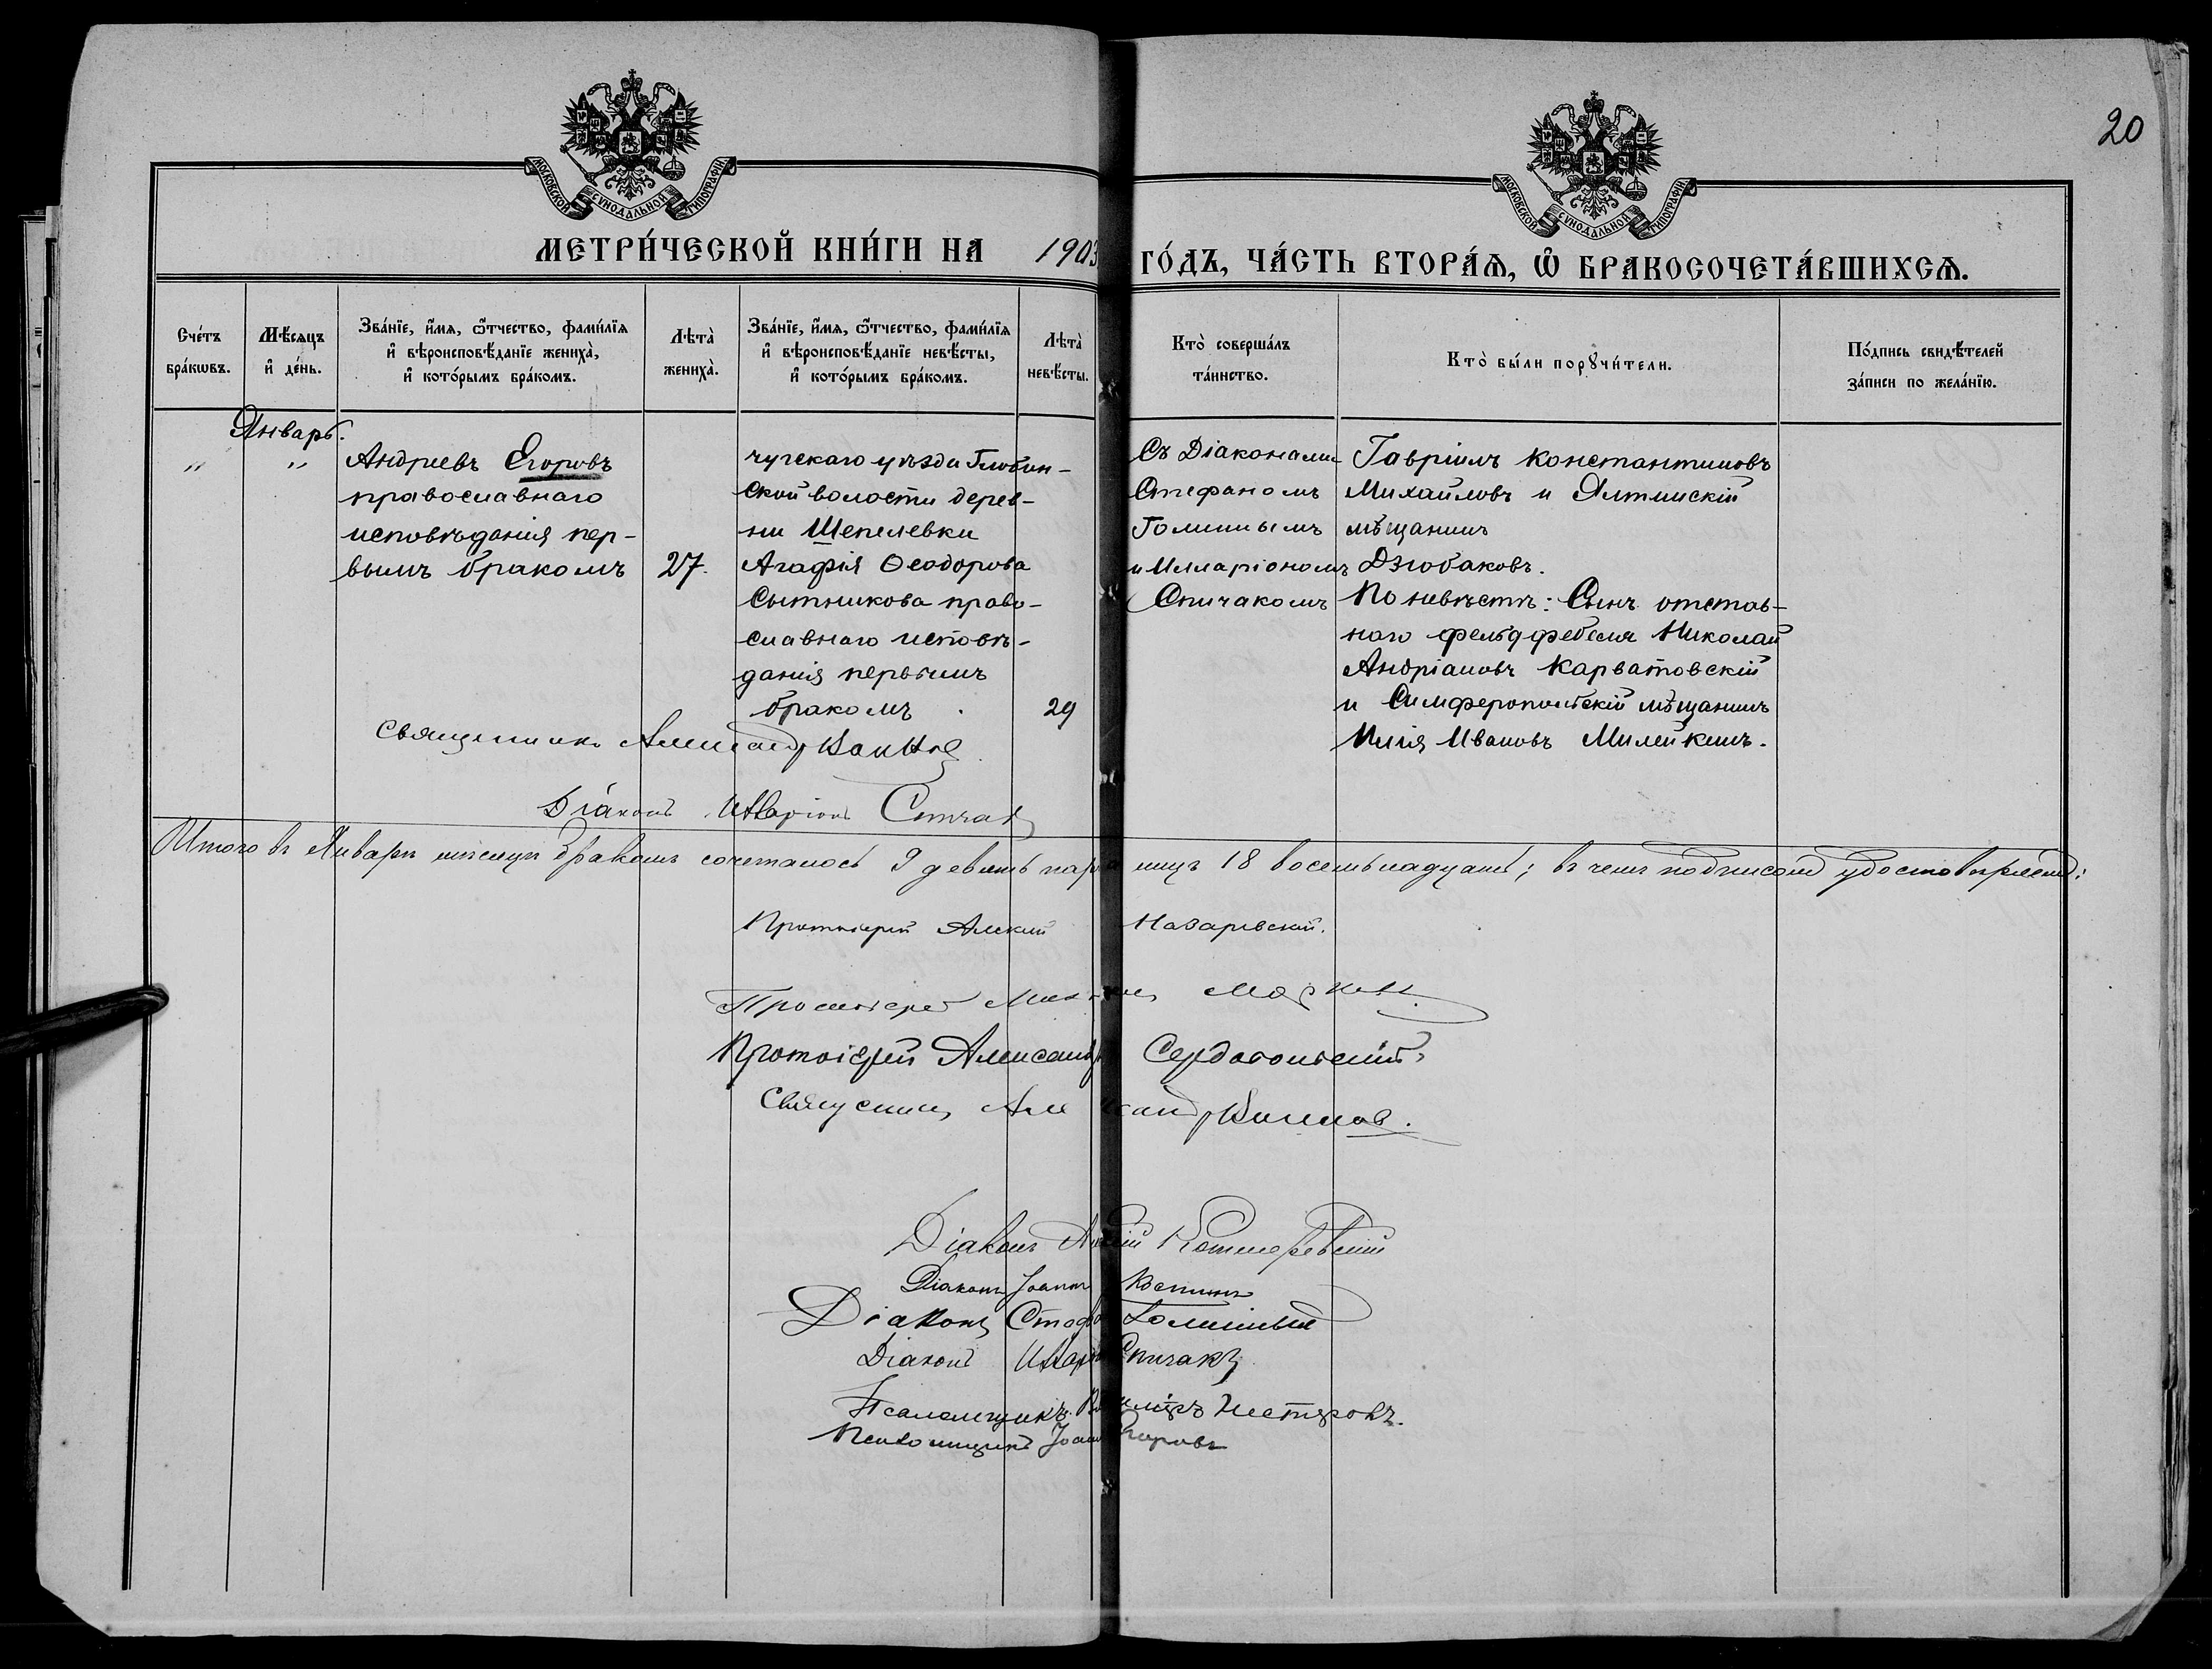 20
МОСКОВСКОЙ СѴНОДАЛЬНОЙ ТИПОГРАФІИ
МОСКОВСКОЙ СѴНОДАЛЬНОЙ ТИПОГРАФІИ
МЕТРИ́ЧЕСКОЙ КНИ́ГИ НА 1903 ГО́ДЪ, ЧА́СТЬ ВТОРА́Ѧ, Ѿ БРАКОСОЧЕТА́ВШИХСѦ.
Сче́тъ
бра́кѡвъ.
Мѣ́сяцъ
и҆ де́нь.
Зва́нїе, и҆́мѧ, ѻ҆́тчество, фами́лїѧ
и҆ вѣроисповѣ́данїе жениха̀,
и҆ кото́рымъ бра́комъ.
Лѣта̀
жениха̀.
Зва́нїе, и҆́мѧ, ѻ҆́тчество, фами́лїѧ
и҆ вѣроисповѣ́данїе невѣ́сты,
и҆ кото́рымъ бра́комъ.
Лѣта̀
невѣ́сты.
Кто̀ соверша́лъ
та́инство.
Кто̀ бы́ли порꙋчи́тели.
По́дпись свидѣ́телей
за́писи по жела́нїю.
Январь.
" "
Андреевъ Егоровъ
православнаго
исповѣданія пер-
вымъ бракомъ 27.
чугскаго уѣзда Глобин-
ской волости дерев-
ни Шепелевки
Агафія Ѳеодорова
Сытникова право-
славнаго исповѣ-
данія первымъ
бракомъ . 29
Съ Діаконами
Стефаномъ
Голинымъ
и Илларіономъ
Спичакомъ
Гавріилъ Константиновъ
Михайловъ и Ялтинскій
мѣщанинъ
Дзюбаковъ.
По невѣстѣ: Сынъ отстав-
наго фельдфебеля Николай
Андріановъ Карватовскій
и Симферопольскій мѣщанинъ
Илія Ивановъ Милейкинъ.
Священникъ Александръ
Діаконъ Илларіонъ Спичакъ
Итого въ Январѣ мѣсяцѣ бракомъ сочеталось 9 девять паръ лицъ 18 восемьнадцать; въ чемъ подписомъ удостовѣряемъ:
Протоіерей Алексій Назаревскій.
Протоіерей
Протоіерей Александръ Сердобольскій
Священникъ Александръ
Діаконъ
Діаконъ Іоаннъ Костинъ
Діаконъ Стефанъ
Діаконъ Илларіонъ Спичакъ
Псаломщикъ Нестеровъ.
Псаломщикъ Іоаннъ